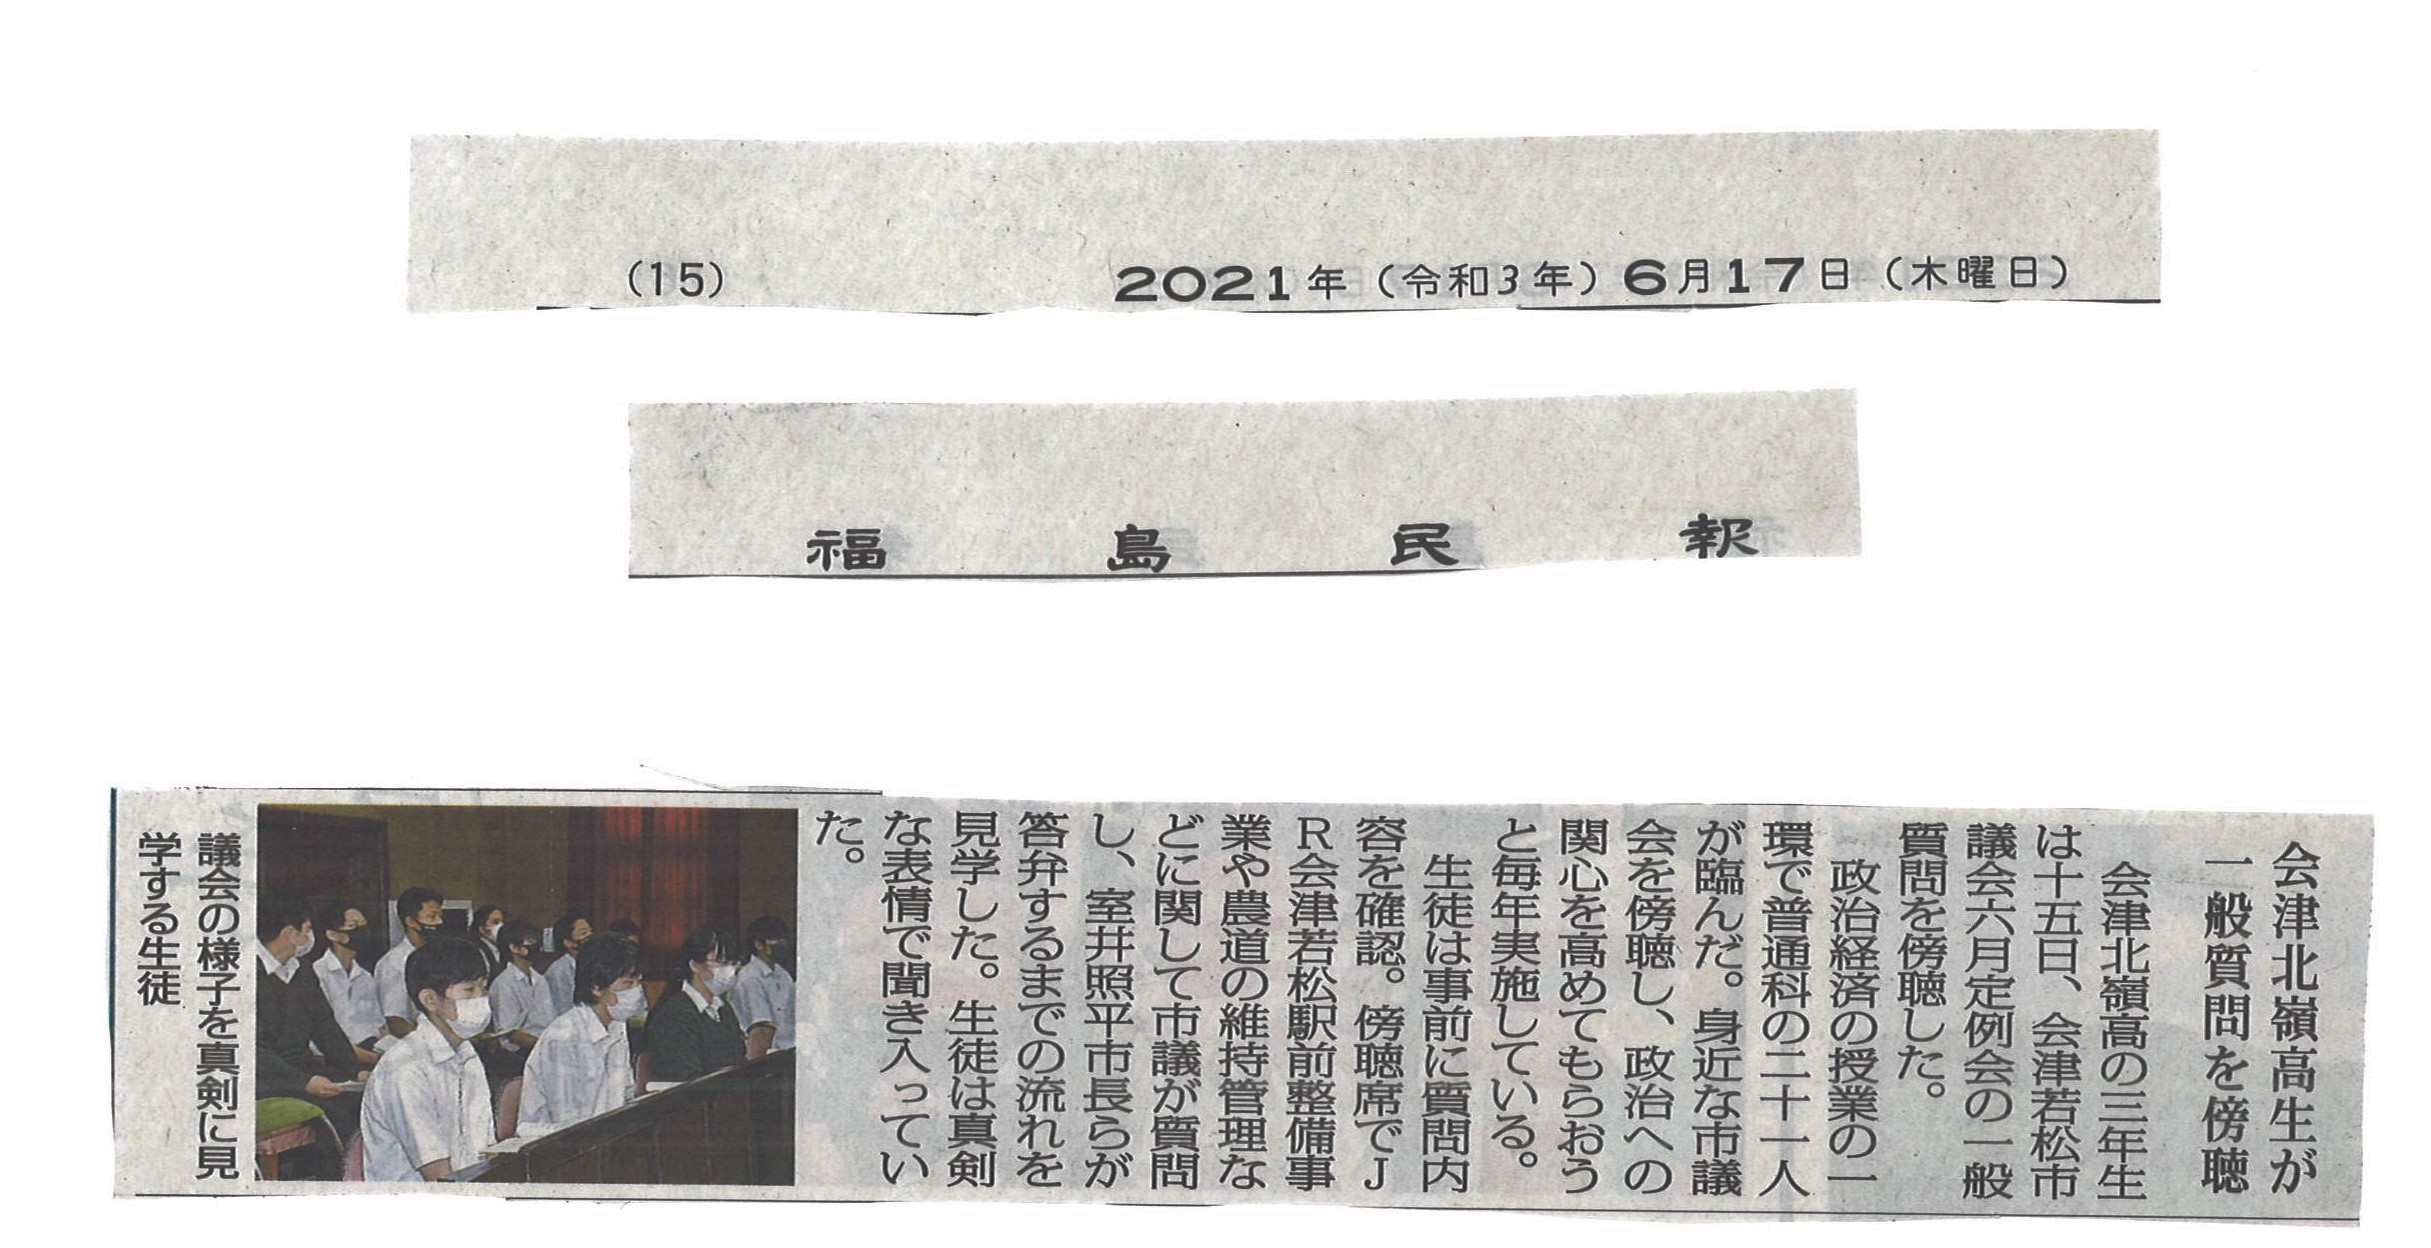 (15)
2021年(令和3年)6月17日(木曜日)
福島民報
会津北嶺高生が
一般質問を傍聴
会津北嶺高の三年生
は十五日、会津若松市
議会六月定例会の一般
質問を傍聴した。
政治経済の授業の一
環で普通科の二十一人
が臨んだ。身近な市議
会を傍聴し、政治への
関心を高めてもらおう
と毎年実施している。
生徒は事前に質問内
容を確認。傍聴席でJ
R会津若松駅前整備事
業や農道の維持管理な
どに関して市議が質問
し、室井照平市長らが
答弁するまでの流れを
見学した。生徒は真剣
な表情で聞き入ってい
た。
議会の様子を真剣に見
学する生徒